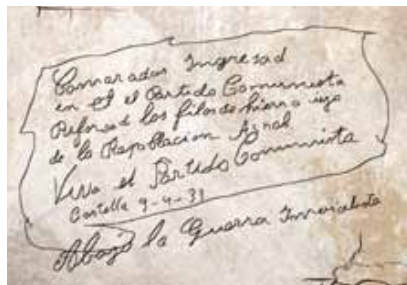 Camaradas Ingresad
en El el Partido Comunista
Reforsad las filas de hierro
de la Rebolucion
Viva el Partido Comunista
Castilla 9-4-33
Abajo la Guerra